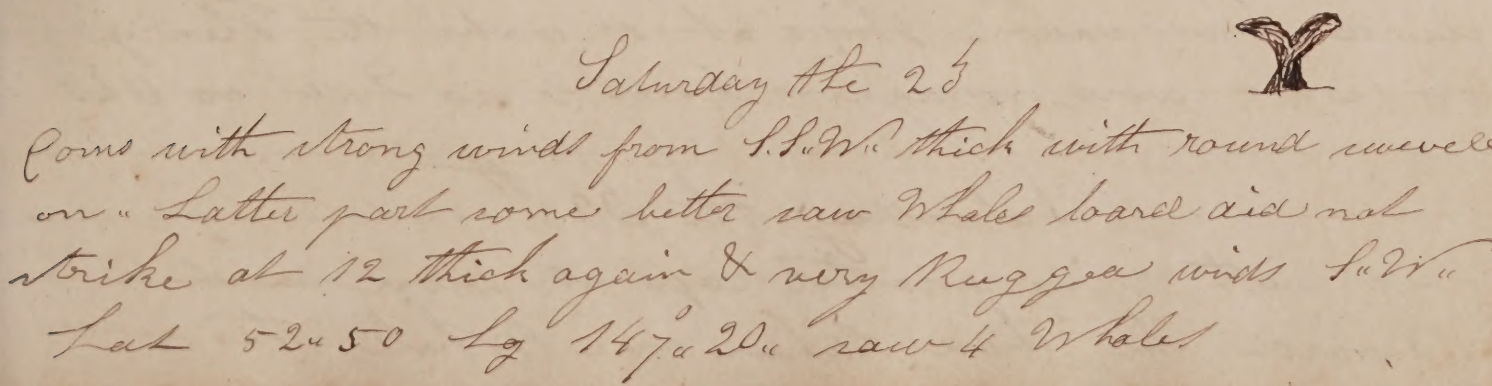 Saturday the 25
Coms with strong winds from S.S.W. thick with round swell
on " Latter part some better saw Whales loard did not
strike at 12 thick again & very Rugged winds S.W.
Lat 52"50 Lg 147°20" saw 4 Whales